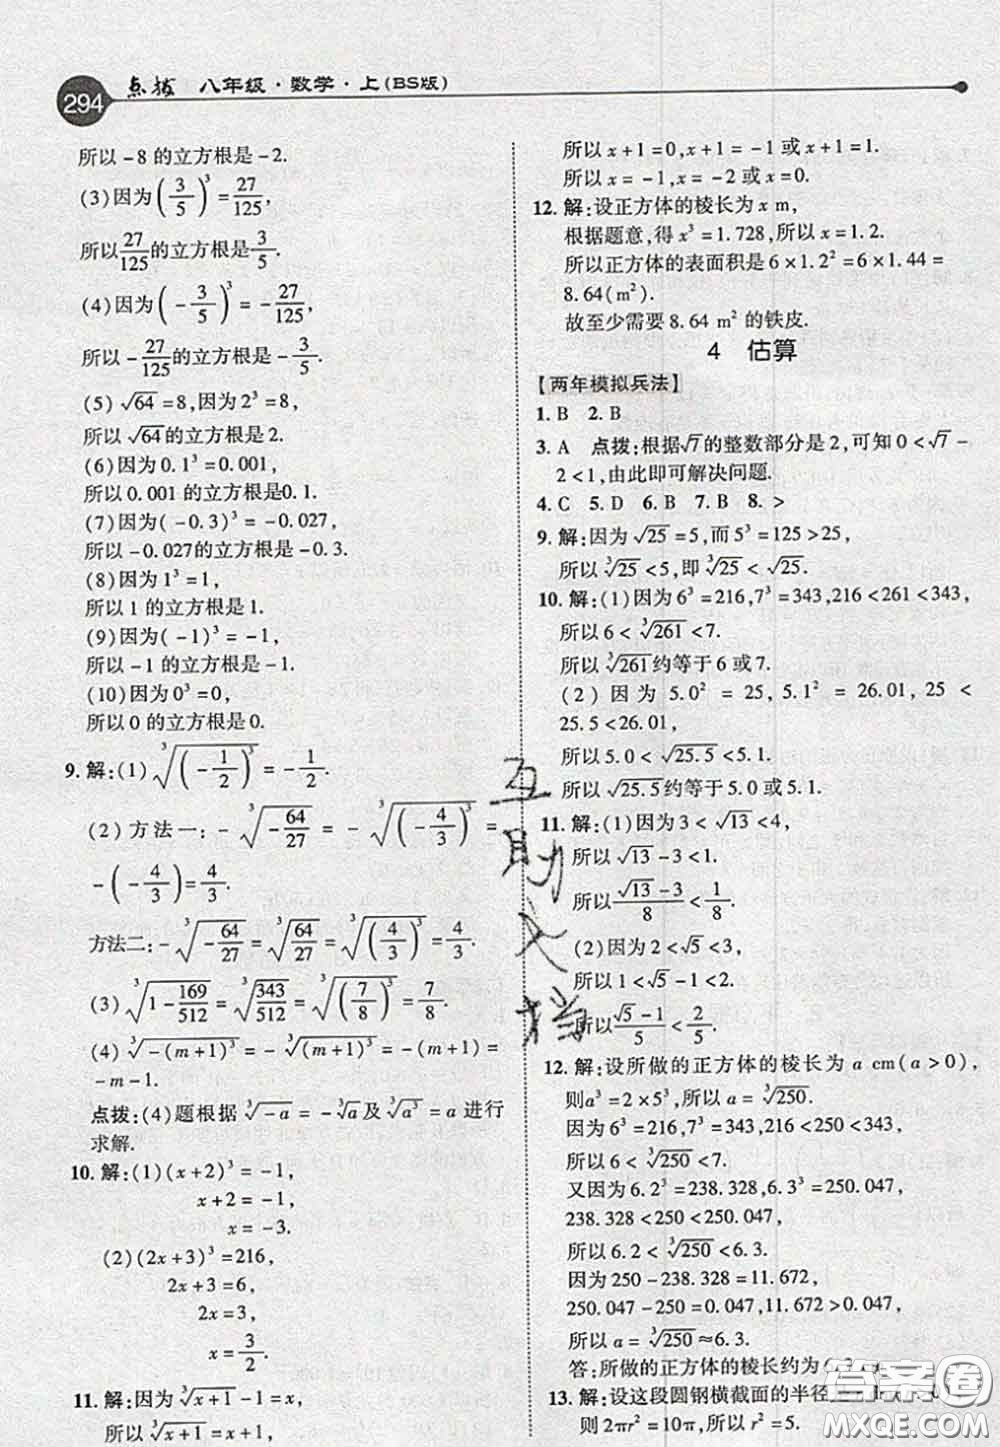 294 点拨 八年级·数学·上(BS版)
所以-8的立方根是-2.
(3)因为(3/5)^3=27/125,
所以27/125的立方根是3/5.
(4)因为(-3/5)^3=-27/125,
所以-27/125的立方根是-3/5.
(5)√64=8,因为2^3=8,
所以√64的立方根是2.
(6)因为0.1^3=0.001,
所以0.001的立方根是0.1.
(7)因为(-0.3)^3=-0.027,
所以-0.027的立方根是-0.3.
(8)因为1^3=1,
所以1的立方根是1.
(9)因为(-1)^3=-1,
所以-1的立方根是-1.
(10)因为0^3=0,
所以0的立方根是0.
9.解:(1)∛((-1/2)^3)=-1/2.
(2)方法一:-∛(-64/27)=-∛((-4/3)^3)=
-(-4/3)=4/3.
方法二:-∛(-64/27)=∛(64/27)=∛((4/3)^3)=4/3.
(3)∛(1-169/512)=∛(343/512)=∛((7/8)^3)=7/8.
(4)∛(-(m+1)^3)=-∛((m+1)^3)=-(m+1)=
-m-1.
点拨:(4)题根据∛(-a)=-∛a及∛(a^3)=a进行
求解.
10.解:(1)(x+2)^3=-1,
x+2=-1,
x=-3.
(2)(2x+3)^3=216,
2x+3=6,
2x=3,
x=3/2.
11.解:因为∛(x+1)-1=x,
所以∛(x+1)=x+1.
所以x+1=0,x+1=-1或x+1=1.
所以x=-1,x=-2或x=0.
12.解:设正方体的棱长为x m,
根据题意,得x^3=1.728,所以x=1.2.
所以正方体的表面积是6×1.2^2=6×1.44=
8.64(m^2).
故至少需要8.64 m^2的铁皮.
4 估算
【两年模拟兵法】
1.B 2.B
3.A 点拨:根据√7的整数部分是2,可知0<√7-
2<1,由此即可解决问题.
4.C 5.D 6.B 7.B 8.>
9.解:因为√25=5,而5^3=125>25,
所以∛25<5,即∛25<√25.
10.解:(1)因为6^3=216,7^3=343,216<261<343,
所以6<∛261<7.
所以∛261约等于6或7.
(2)因为5.0^2=25,5.1^2=26.01,25<
25.5<26.01,
所以5.0<√25.5<5.1.
所以√25.5约等于5.0或5.1.
11.解:(1)因为3<√13<4,
所以√13-3<1.
所以(√13-3)/8<1/8.
(2)因为2<√5<3,
所以1<√5-1<2.
所以(√5-1)/5<2/5.
12.解:设所做的正方体的棱长为a cm(a>0),
则a^3=2×5^3,所以a=∛250.
因为6^3=216,7^3=343,216<250<343,
所以6<∛250<7.
又因为6.2^3=238.328,6.3^3=250.047,
238.328<250<250.047,
所以6.2<∛250<6.3.
因为250-238.328=11.672,
250.047-250=0.047,11.672>0.047,
所以a=∛250≈6.3.
答:所做的正方体的棱长约为6.3
13.解:设这段圆钢横截面的半径
则2πr^2=10π,所以r^2=5.
互助文档
答案圈
MXQE.COM